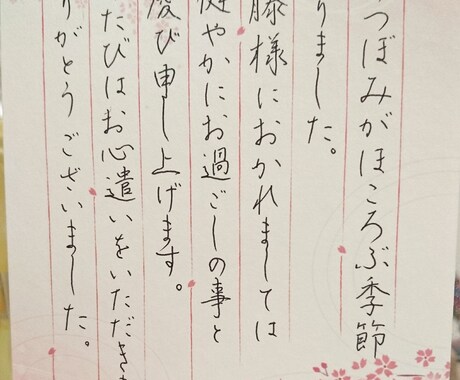 つぼみがほころぶ季節
りました。
藤様におかれましては
健やかにお過ごしの事と
慶び申し上げます。
たびはお心遣いをいただき
りがとうございました。